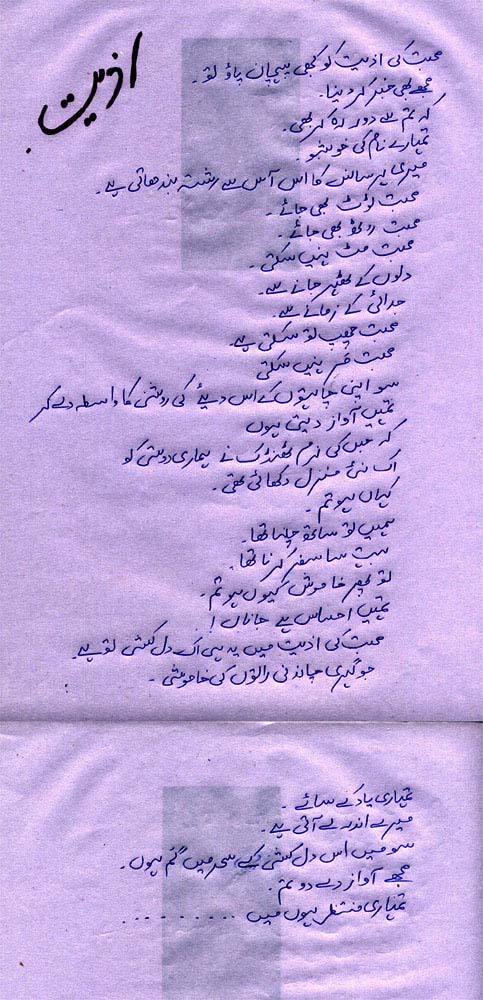 اذیت
محبت کی اذیت کو کبھی پہچان پاؤ تو۔
مجھے بھی خبر کر دینا۔
کہ تم سے دور رہ کر بھی۔
تمہارے نام کی خوشبو۔
میری ہر سانس کا اس آس سے رشتہ بندھاتی ہے۔
محبت لوٹ بھی جائے۔
محبت روٹھ بھی جائے۔
محبت مٹ نہیں سکتی۔
دلوں کے ٹھہر جانے سے۔
جدائی کے زمانے سے۔
محبت چھپ تو سکتی ہے۔
محبت مر نہیں سکتی
سو اپنی چاہتوں کے اس دیئے کی روشنی کا واسطہ دے کر
تمہیں آواز دیتی ہوں
کہ جس کی نرم ٹھنڈک نے ہماری دوستی کو
اک نئی منزل دکھائی تھی۔
کہاں ہو تم۔
ہمیں تو ساتھ چلنا تھا۔
بہت سا سفر کرنا تھا۔
تو پھر خاموش کیوں ہو تم۔
تمہیں احساس ہے جاناں!
محبت کی اذیت میں یہ ہی اک دل کشی تو ہے۔
جو گہری چاندنی راتوں کی خاموشی۔
تمہاری یاد کے سائے۔
میرے اندر لے آتی ہے۔
سو میں اس دل کشی کے سحر میں گم ہوں۔
مجھے آواز دے دو تم۔
تمہاری منتظر ہوں میں .........